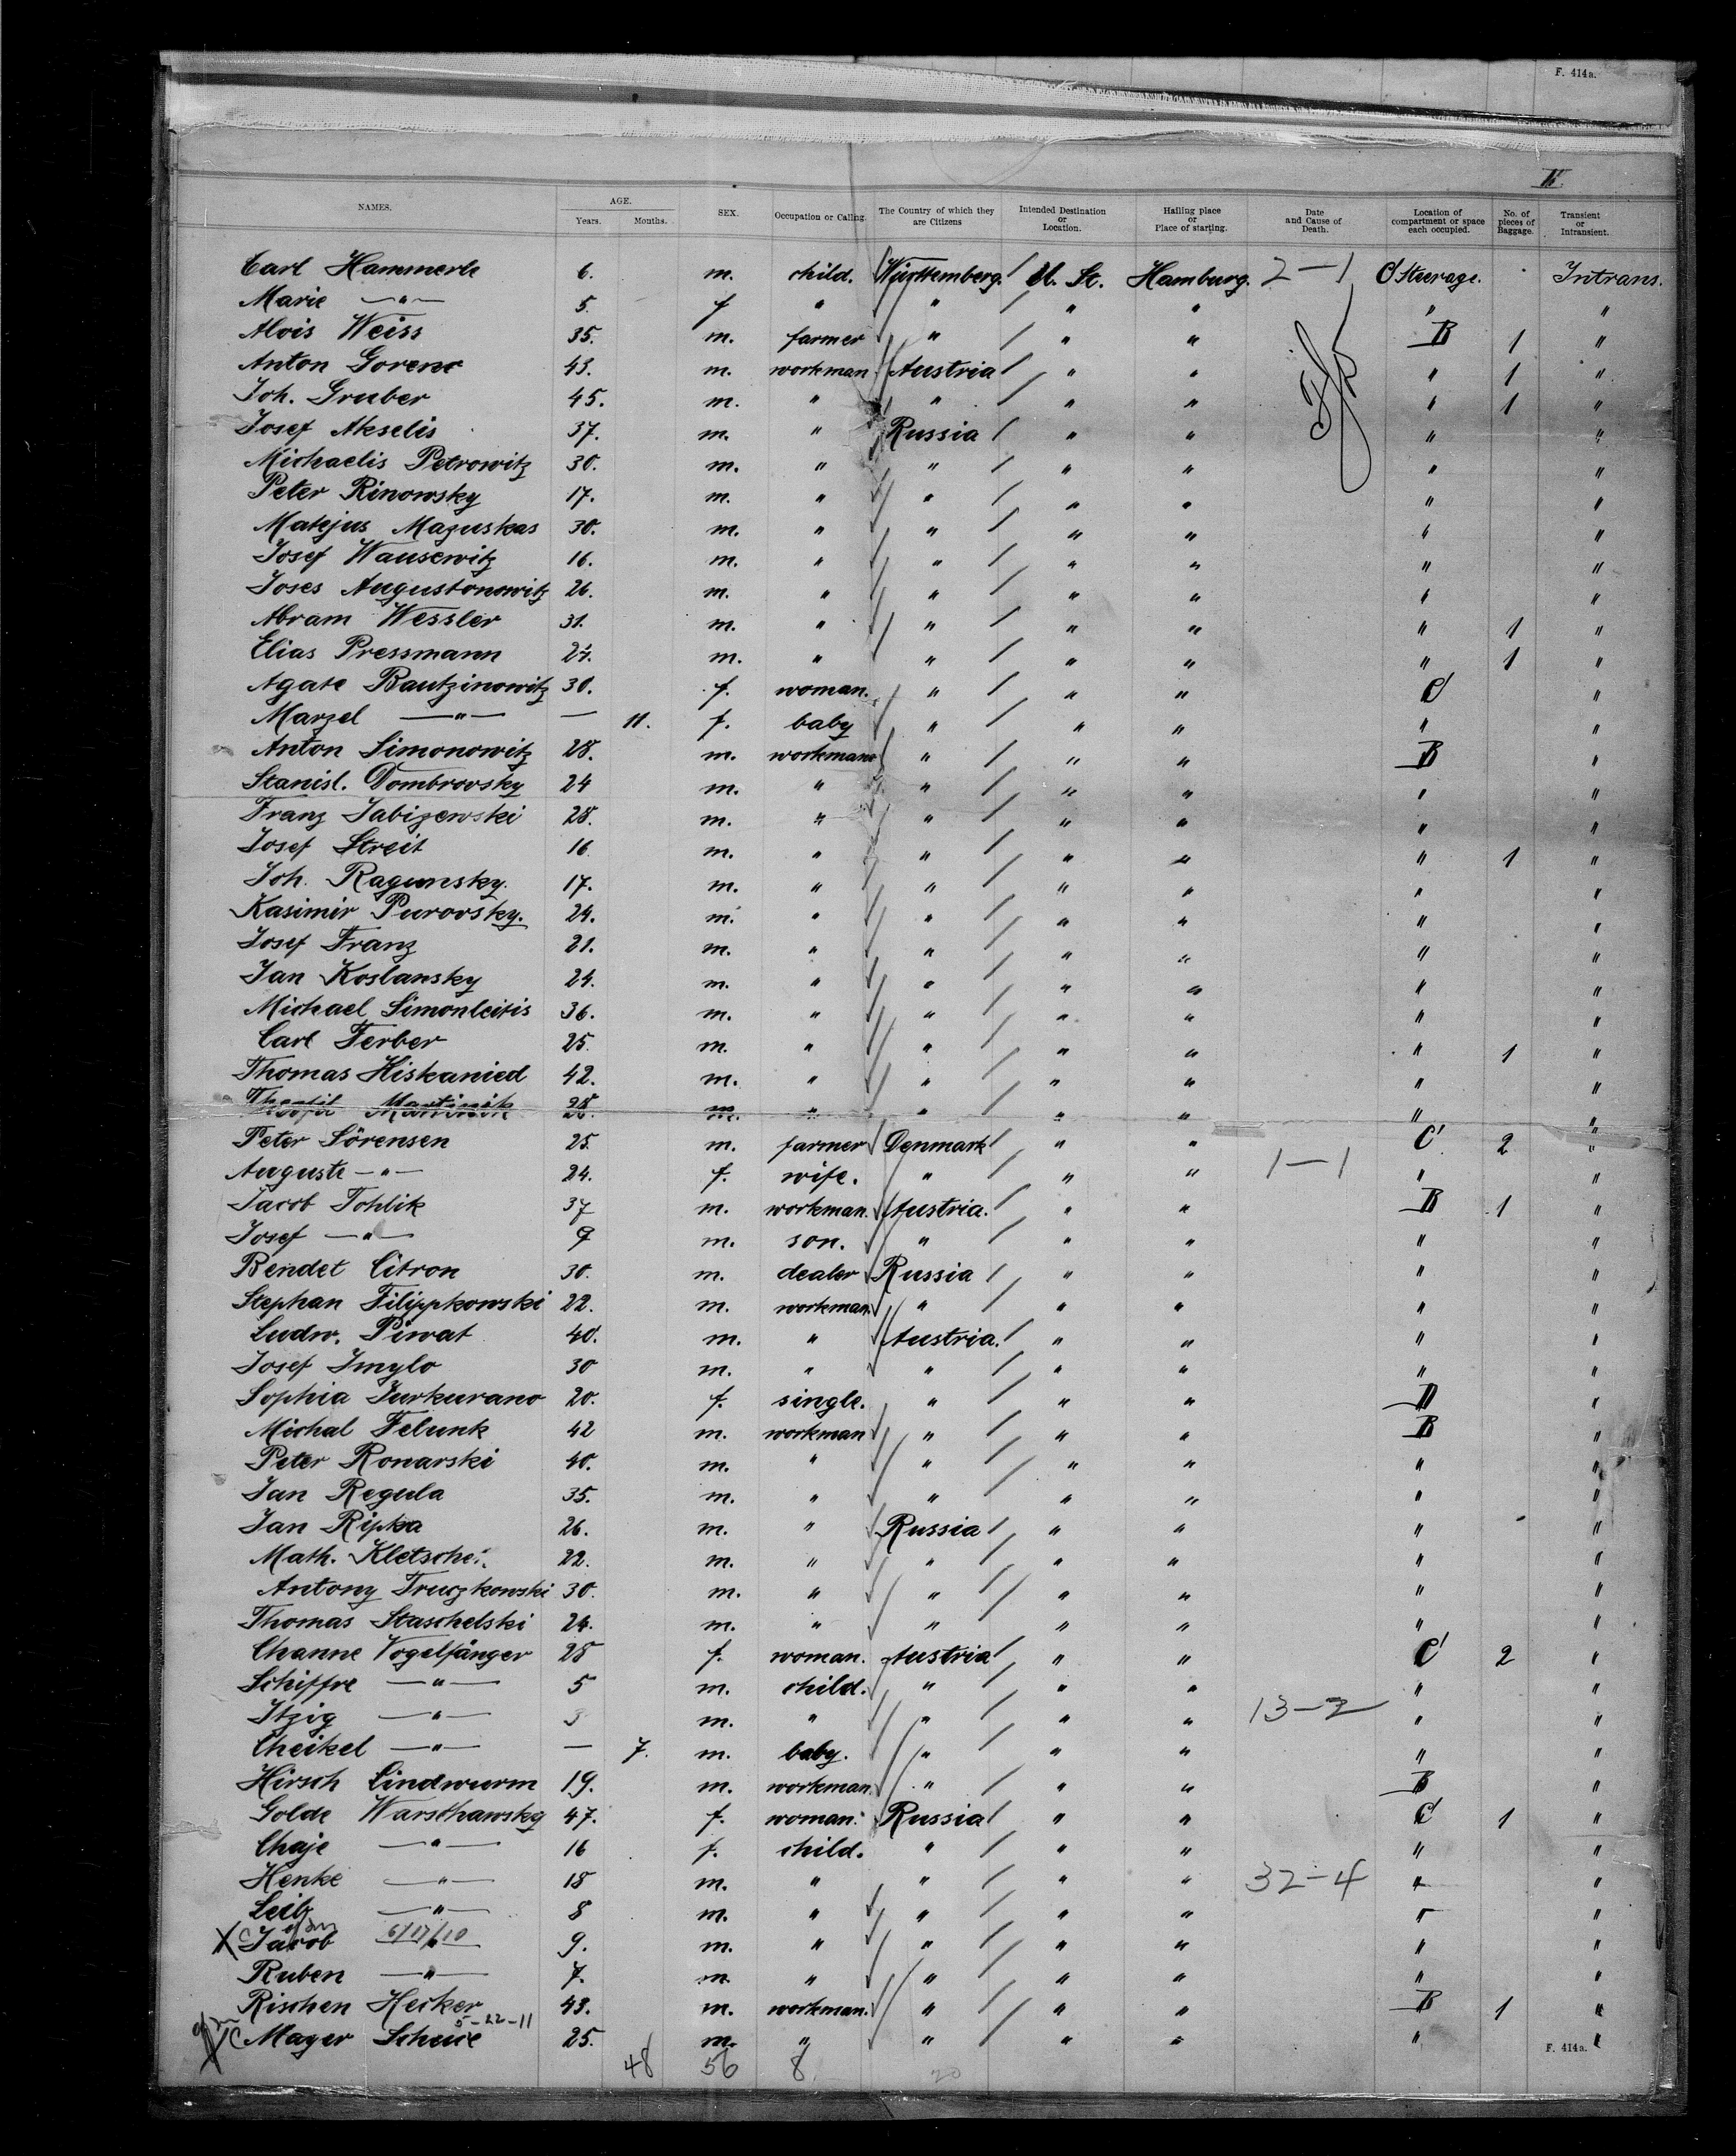 F. 414a.
II.
NAMES. AGE. Years. Months. SEX. Occupation or Calling. The Country of which they are Citizens Intended Destination or Location. Hailing place or Place of starting. Date and Cause of Death. Location of compartment or space each occupied. No. of pieces of Baggage. Transient or Intransient.
Carl Hammerle 6. m. child. Württemberg. U. St. Hamburg. 2-1 C Steerage. Intrans.
Marie —"— 5. f " " " " " "
Alois Weiss 35. m. farmer " " " B 1 "
Anton Gorenc 43. m. workman Austria " " " 1 "
Joh. Gruber 45. m. " " " " " 1 "
Josef Akselis 37. m. " Russia " " " "
Michaelis Petrowitz 30. m. " " " " " "
Peter Rinowsky 17. m. " " " " " "
Matejus Mazuskas 30. m. " " " " " "
Josef Wausewitz 16. m. " " " " " "
Joses Augustonowitz 26. m. " " " " " "
Abram Wessler 31. m. " " " " " 1 "
Elias Pressmann 27. m. " " " " " 1 "
Agate Bautzinowitz 30. f. woman. " " " C "
Marzel —"— — 11. f. baby " " " " "
Anton Simonowitz 28. m. workman " " " B "
Stanisl. Dombrovsky 24 m. " " " " " "
Franz Jabizewski 28. m. " " " " " "
Josef Streit 16 m. " " " " " 1 "
Joh. Ragunsky. 17. m. " " " " " "
Kasimir Purovsky. 24. m. " " " " " "
Josef Franz 21. m. " " " " " "
Jan Koslansky 24. m. " " " " " "
Michael Simonleitis 36. m. " " " " " "
Carl Ferber 25. m. " " " " " 1 "
Thomas Hiskanied 42. m. " " " " " "
Theofil Martinik 28. m. " " " " " "
Peter Sörensen 25. m. farmer Denmark " " C 2 "
Auguste —"— 24. f. wife. " " " 1-1 " "
Jacob Tohlik 37 m. workman. Austria. " " B 1 "
Josef —"— 9 m. son. " " " " "
Bendet Citron 30. m. dealer Russia " " " "
Stephan Filippkowski 22. m. workman. " " " " "
Ludw. Piwat 40. m. " Austria. " " " "
Josef Imylo 30 m. " " " " " "
Sophia Jurkurano 20. f. single. " " " D "
Michal Felunk 42 m. workman " " " B "
Peter Ronarski 40. m. " " " " " "
Jan Regula 35. m. " " " " " "
Jan Ripka 26. m. " Russia " " " "
Math. Kletschei. 22. m. " " " " " "
Antony Truszkowski 30. m. " " " " " "
Thomas Staschelski 24. m. " " " " " "
Channe Vogelfänger 28 f. woman. Austria " " C 2 "
Schiffre —"— 5 m. child. " " " " "
Itzig —"— 3 m. " " " " 13-2 " "
Cheikel —"— — 7. m. baby. " " " " "
Hirsch Lindwurm 19. m. workman. " " " B "
Golde Warschawsky 47. f. woman. Russia " " C 1 "
Chaje —"— 16 f. child. " " " " "
Henke —"— 18 m. " " " " 32-4 " "
Leib —"— 8 m. " " " " " "
X C Jacob 6/17/10 —"— 9. m. " " " " " "
Ruben —"— 7. m. " " " " " "
Rischen Hecker 43. m. workman. " " " B 1 "
5-22-11
C Mayer Scheue 25. m. " " " " " "
48 56 8 20
F. 414a.